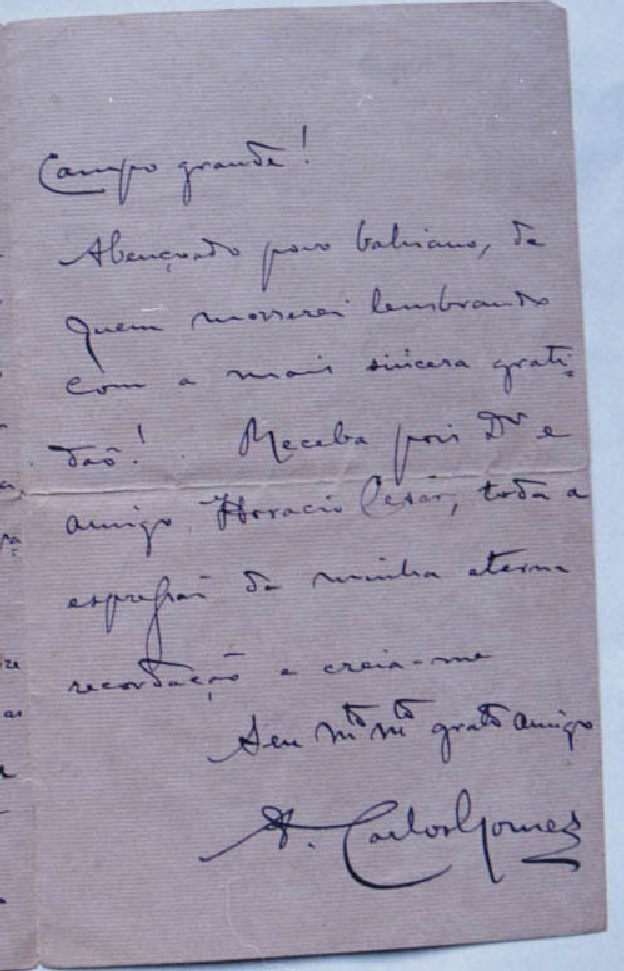 Campo grande!
Abençoado povo bahiano, de
quem morrerei lembrando
com a mais sincera grati-
daõ! Receba pois Dr e
amigo Horacio Cesar, toda a
espressaõ da minha eterna
recordação e creia-me
Seu mto mto grato amigo
A. Carlos Gomes